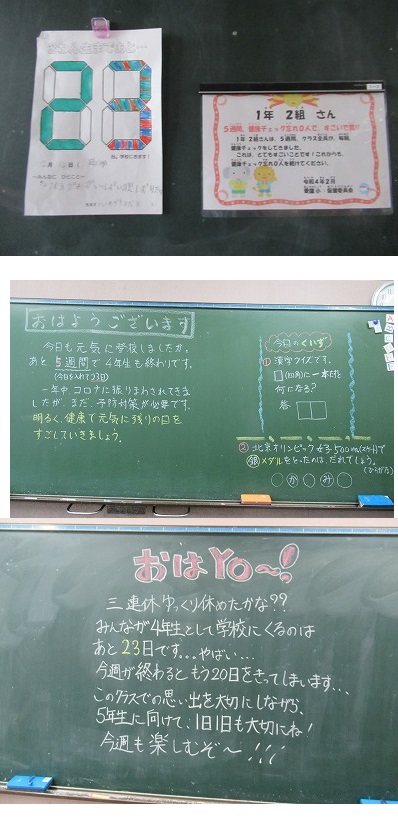 23
1年 2組 さん
5週間、健康チェック忘れ0人で、すごいで賞!
1年2組さんは、5週間、クラス全員が、毎朝、
健康チェックをしてきました。
これは、とてもすごいことです!これからも、
健康チェック忘れ0人を続けてください。
令和4年2月
保健委員会
おはようございます
今日も元気に学校しましたか。
あと5週間で4年生も終わりです。
(今日を入れて23日)
一年中コロナに振りまわされてきま
したが、まだ、予防対策が必要です。
明るく、健康で元気に残りの日を
すごしていきましょう。
今日のくいず
① 漢字クイズです。
□(四角)に一本たすと
何になる?
答
② 北京オリンピック女子500m(スケート)で
銀メダルをとったのは、だれでしょう。
(ひらがな)
○か○み○
おはYO〜!
三連休ゆっくり休めたかな??
みんなが4年生として学校にくるのは
あと23日です...やばい...
今週が終わるともう20日をきってしまいます...、
このクラスでの思い出を大切にしながら、
5年生に向けて、1日1日も大切にね!
今週も楽しむぞ〜!!!